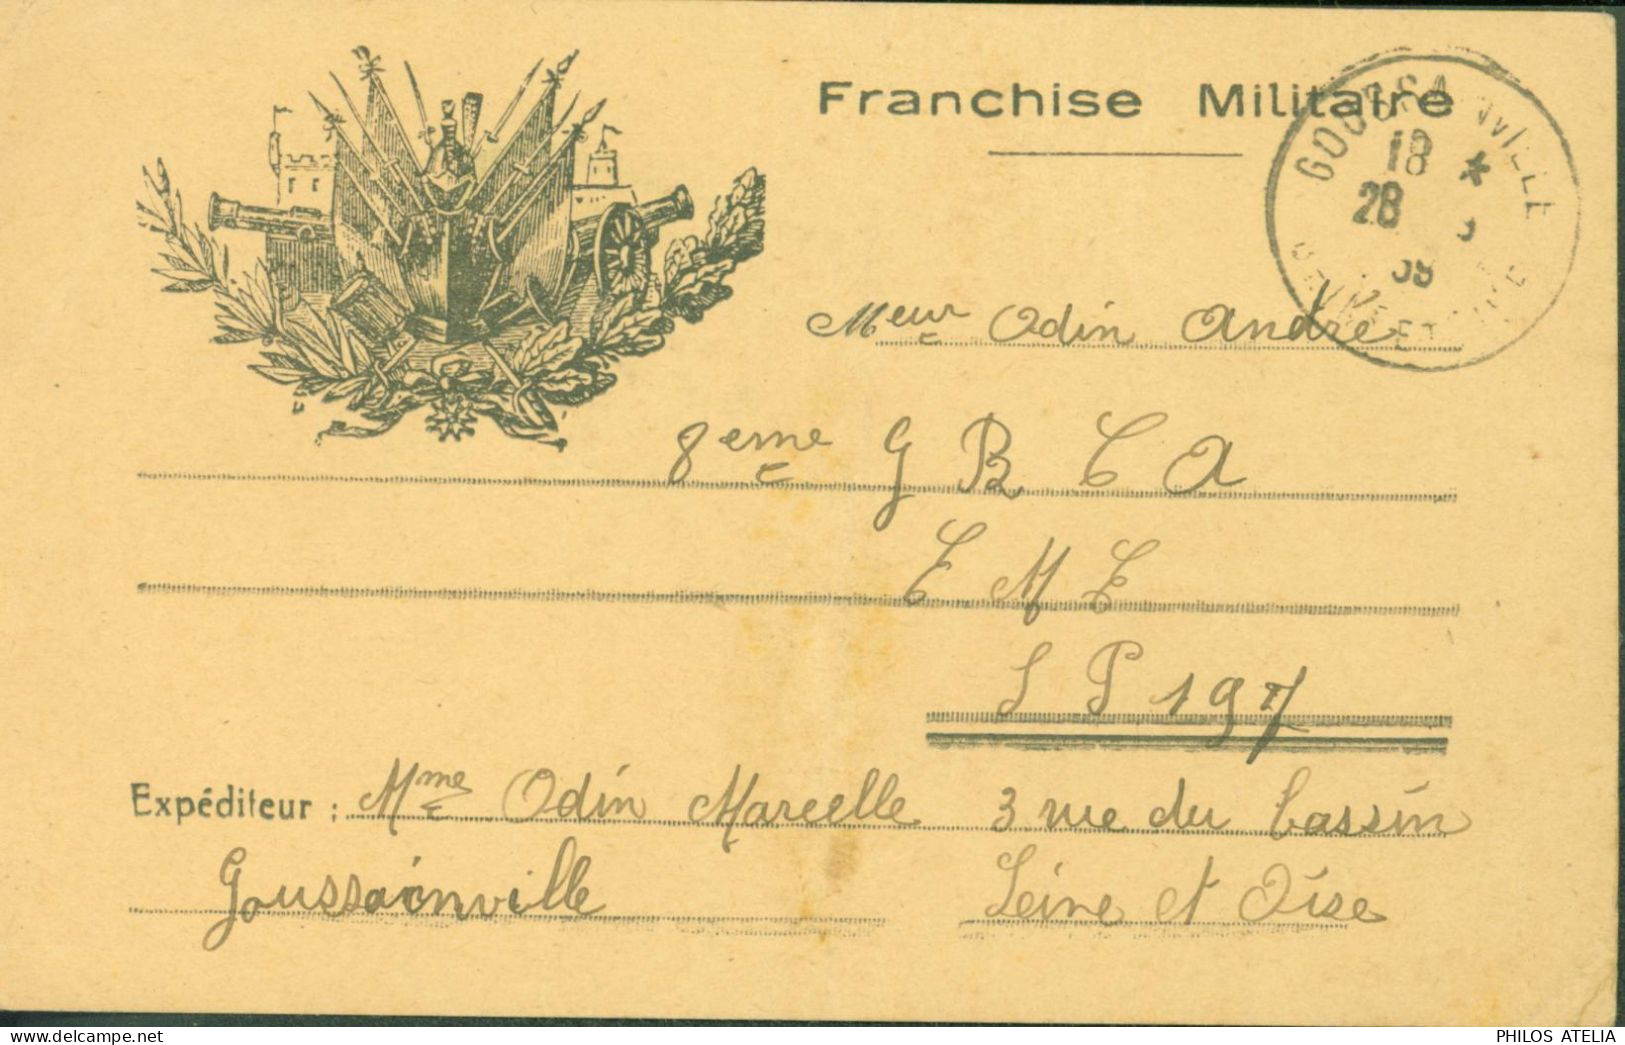 Franchise Militaire
GOUSSAINVILLE
18 *
28
39
SEINE ET OISE
Meur Odin André
8eme G B C A
E M E
S P 197
Expéditeur : Mme Odin Marcelle 3 rue du Cassin
Goussainville Seine et Oise
PHILOS ATELIA